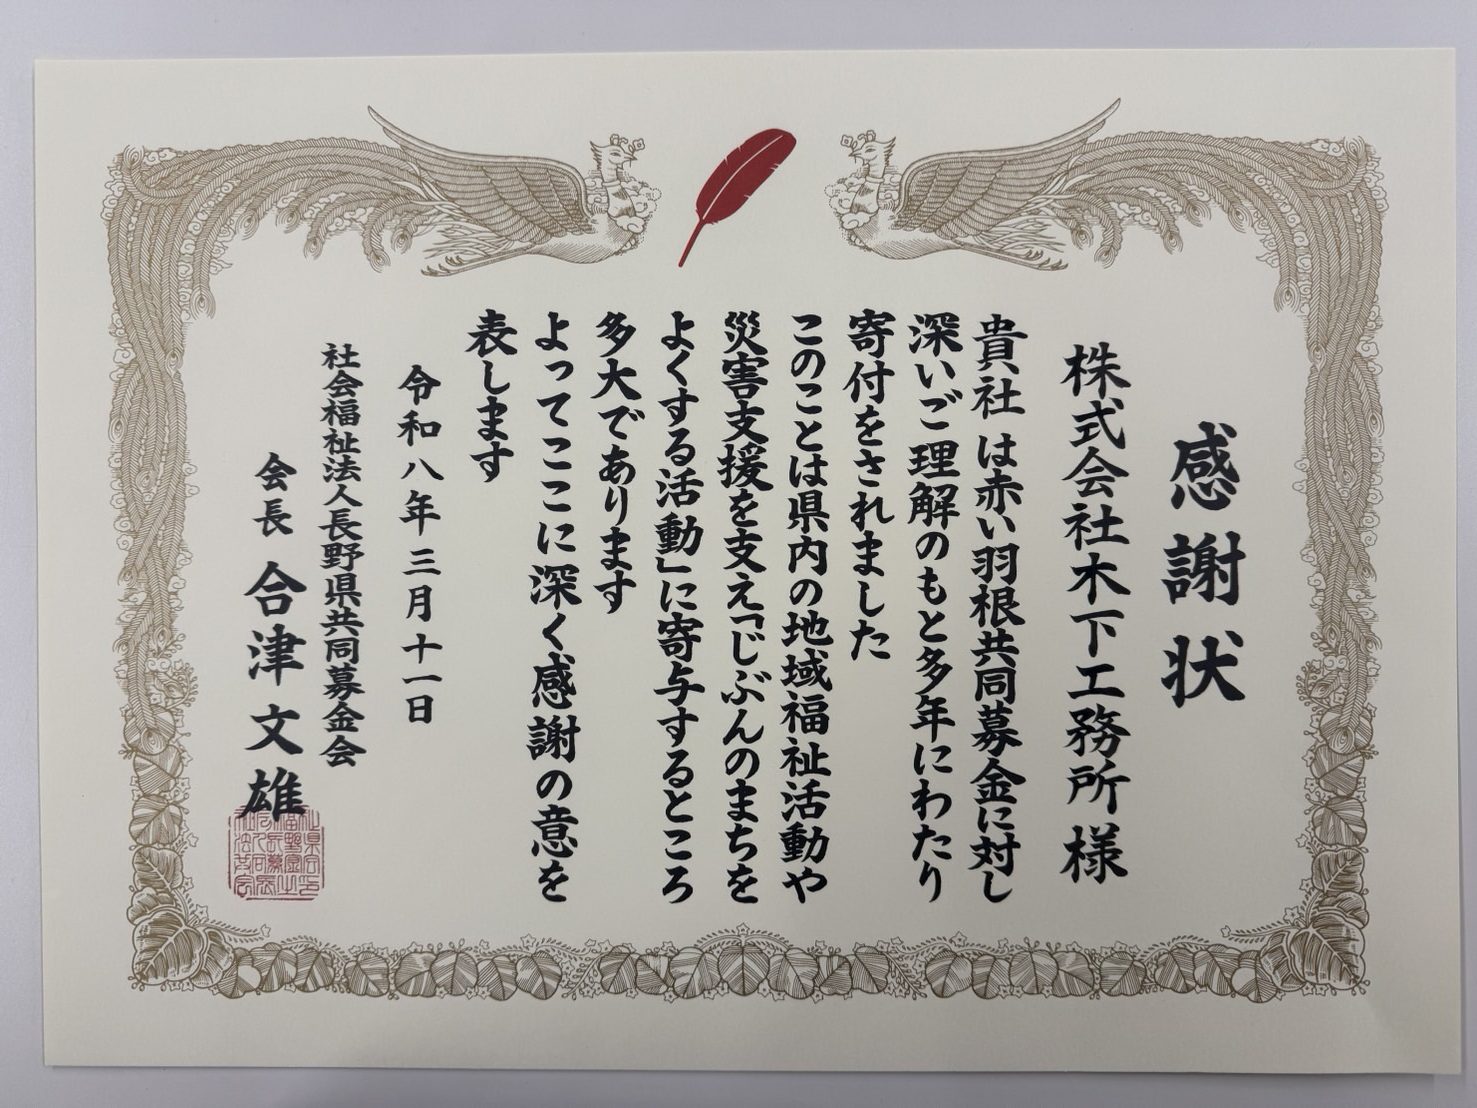 感謝状
株式会社木下工務所様
貴社は赤い羽根共同募金に対し
深いご理解のもと多年にわたり
寄付をされました
このことは県内の地域福祉活動や
災害支援を支え「じぶんのまちを
よくする活動」に寄与するところ
多大であります
よってここに深く感謝の意を
表します
令和八年三月十一日
社会福祉法人長野県共同募金会
会長 合津文雄